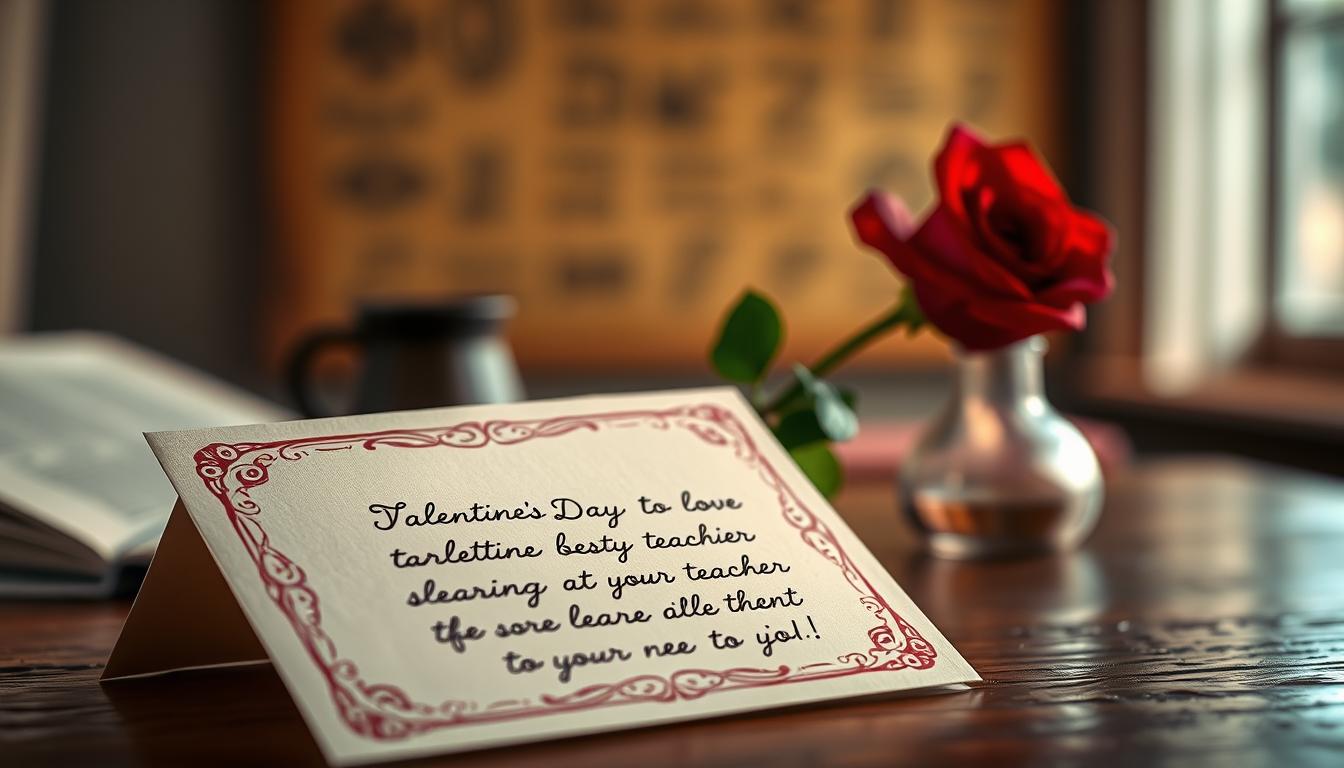 Talentine's Day to love
tarlettine besty teachier
slearing at your teacher
tfe sore leare ille thent
to your nee to yjol.!